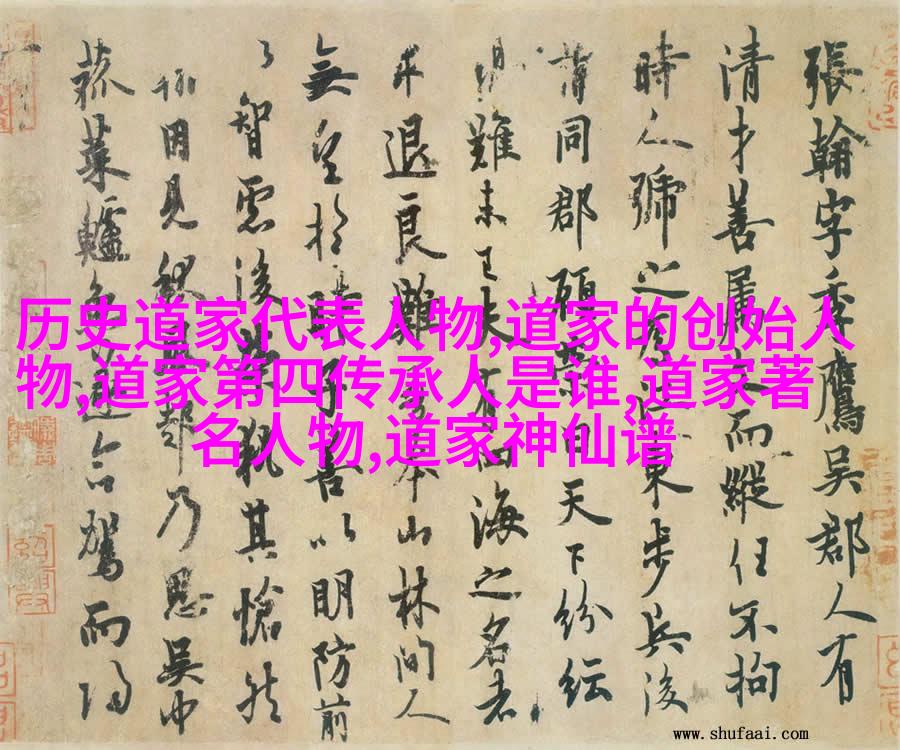 历史道家代表人物,道家的创始人
物,道家第四传承人是谁,道家著
名人物,道家神仙谱
張翰字季鷹吳郡人有
清才善屬文而縱任不拘
時人號之為江東步兵後
謂同郡顧榮曰天下紛紜
難未已夫有四海之名者
求退良難吾本山林間人
無望於時子善以明防前
智慮後榮執其愴然
翰因見秋風起乃思吳中
菰菜鱸魚遂命駕而歸
www.shufaai.com